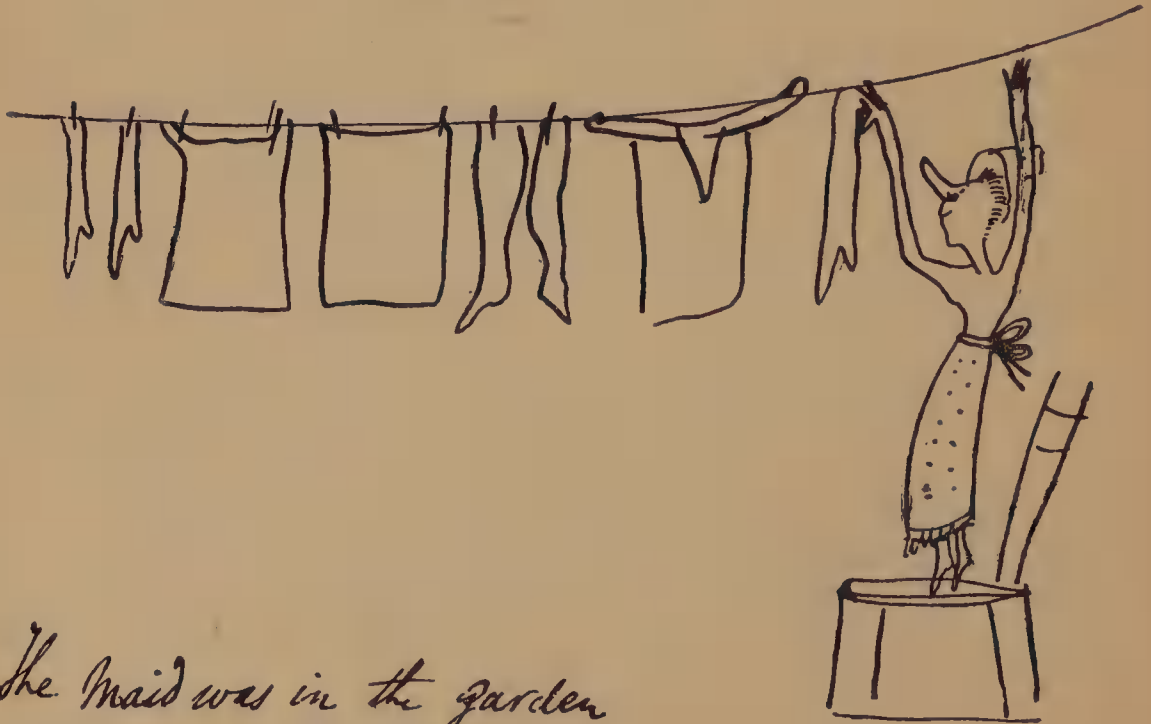 The Maid was in the garden